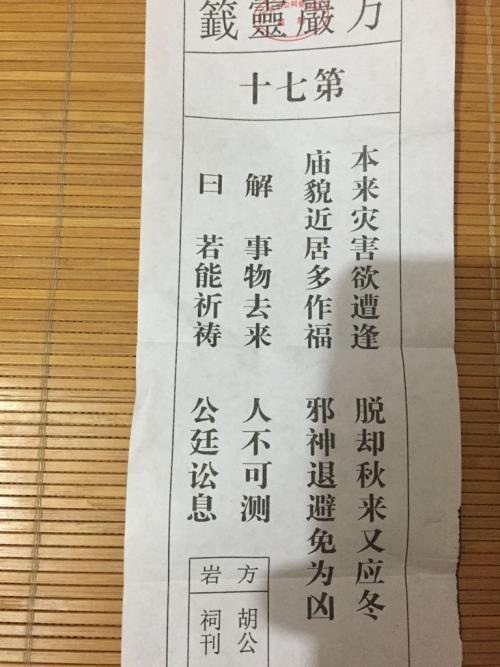 方巖靈籤
第七十
本来灾害欲遭逢 脱却秋来又应冬
庙貌近居多作福 邪神退避免为凶
解 事物去来 人不可测
曰 若能祈祷 公廷讼息
方 胡公
岩 祠刊